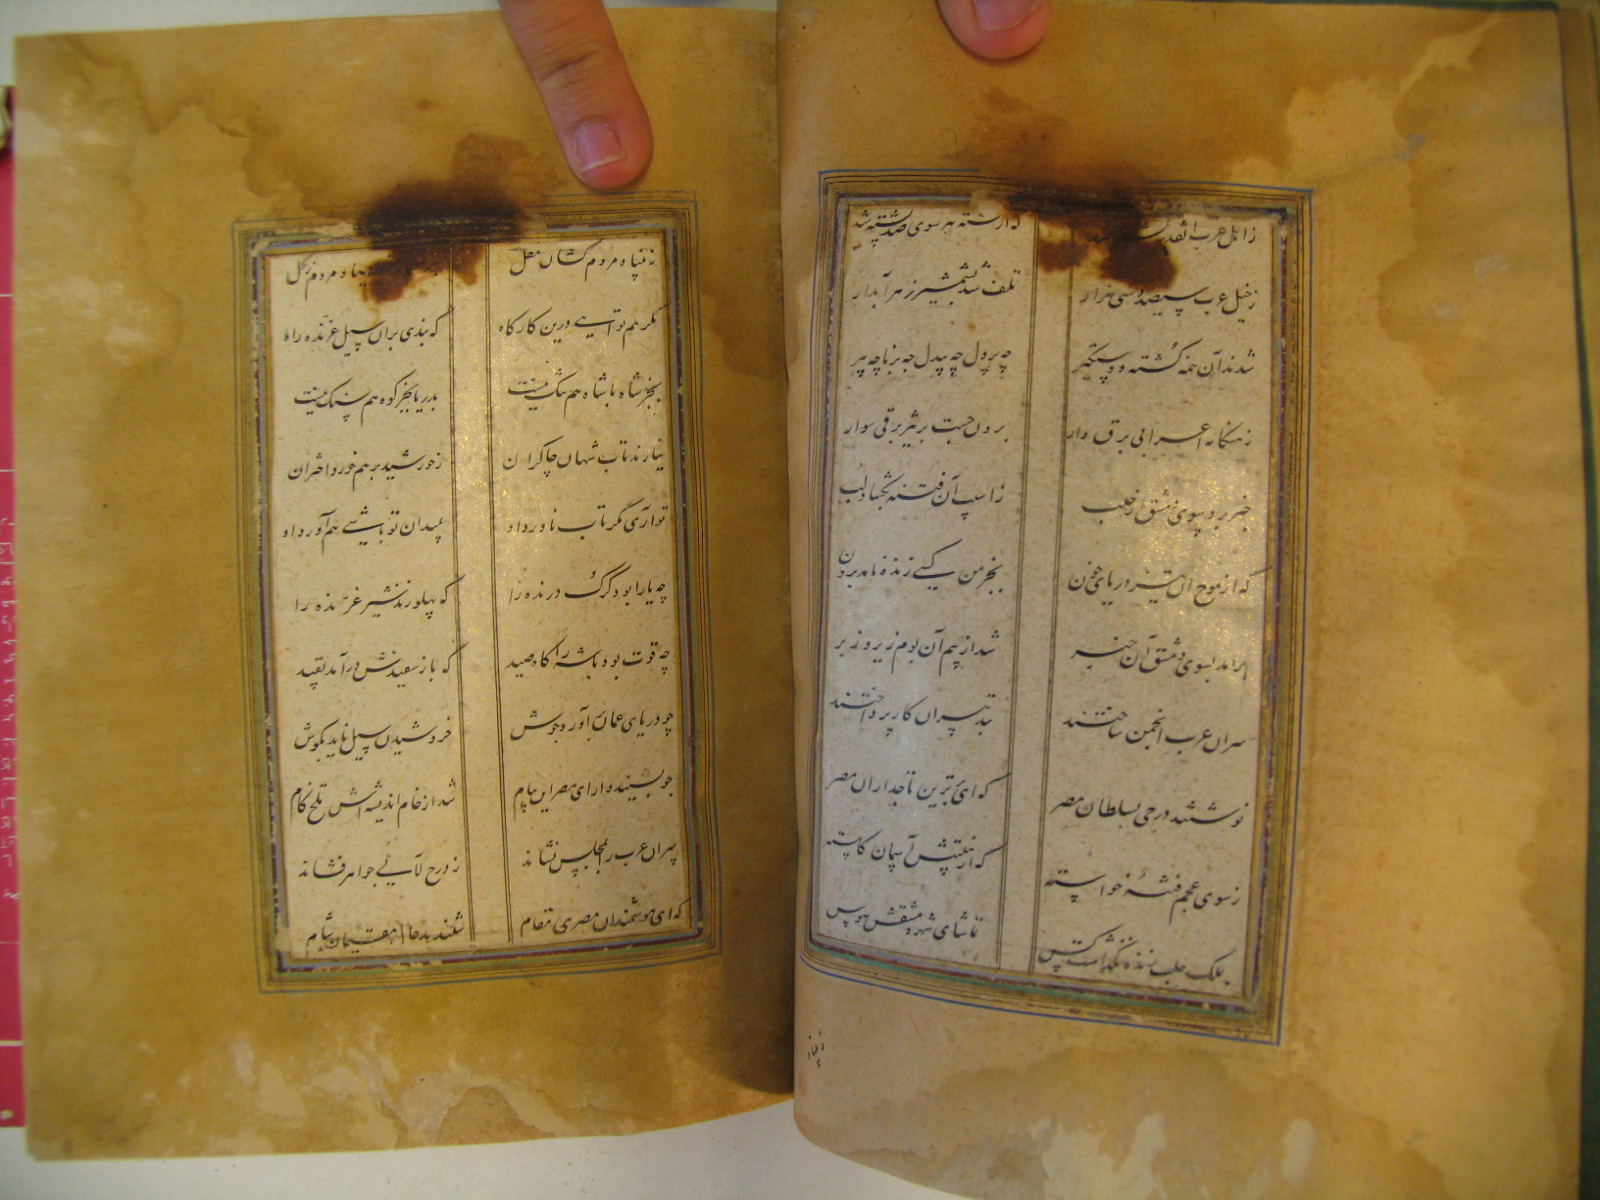 زاهل عرب
که از کشته هر سوی صد پشته شد
زخیل عرب سیصد و سی هزار
تلف شد بشمشیر زهر آبدار
شدند آن همه کشته و دستگیر
چه پر دل چه بیدل چه برنا چه پیر
اعرابی برق وار
برون جست بر تیز برقی سوار
خبر برد سوی دمشق از حلب
زاسیب آن فتنه بگشاد لب
که از موج آن تیز دریای خون
بجز من کسی زنده نامد برون
برآمد بسوی دمشق آن خبر
شد از بیم آن بوم زیر و زبر
سران عرب انجمن ساختند
بتدبیر آن کار پرداختند
نوشتند درجی بسلطان مصر
که ای بهترین تاجداران مصر
زسوی عجم فتنهٔ خواسته
که از هیبتش آسمان کاسته
بملک حلب زنده نگذاشت کس
تماشای شهر دمشقش هوس
زمینا
و مردم کشان مغل
و مردم زگل
مگر هم تو آیی درین کارگاه
که بندی بران سیل غرنده راه
بجز شاه با شاه هم سنگ نیست
بدریا بجز کوه هم سنگ نیست
نیارند تاب شهان چاکران
زخورشید برهم خورد اختران
تو آری مگر تاب ناورد او
بمیدان تو باشی هم آورد او
چه یارا بود گرگ درنده را
که پهلو زند شیر غرنده را
چه قوت بود باشه را گاه صید
که باز سفیدش درآمد بقید
چو دریای عمان برآورد جوش
خروشیدن سیل ناید بگوش
چو بشنید دارای مصر این پیام
شد از خام اندیشه‌اش تلخ کام
سران عرب را بمجلس نشاند
ز درج لآلی جواهر فشاند
که ای هوشمندان مصری مقام
شنیدید حال مقیمان شام